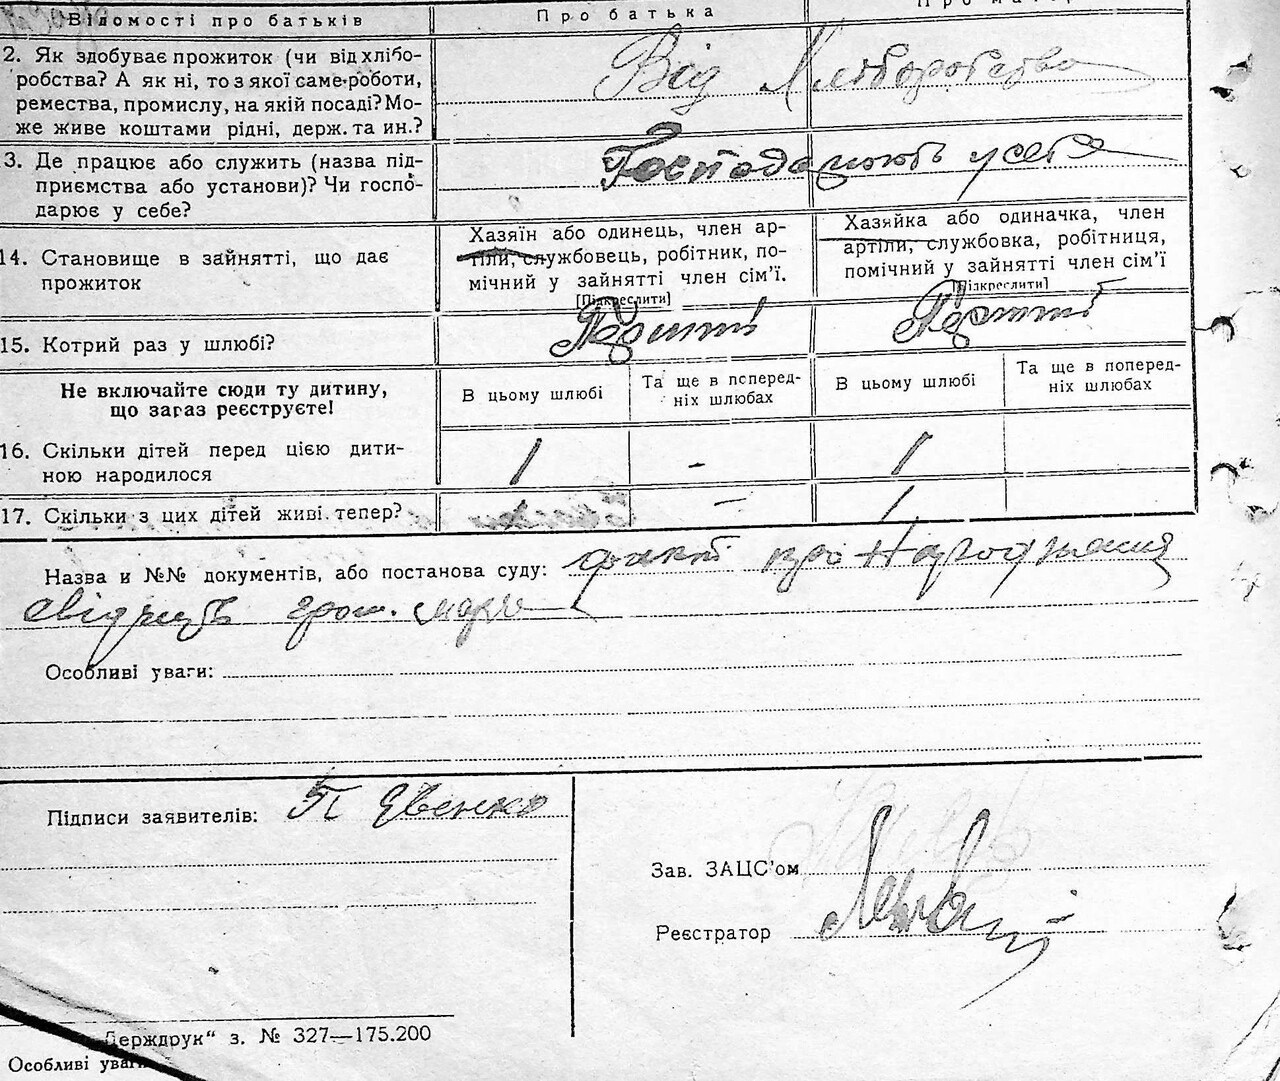 Відомості про батьків
Про батька
2. Як здобуває прожиток (чи від хлібо-
робства? А як ні, то з якої саме роботи,
ремества, промислу, на якій посаді? Мо-
же живе коштами рідні, держ. та ин.?
Від Хліборобства
3. Де працює або служить (назва під-
приємства або установи)? Чи госпо-
дарює у себе?
Господарюють у себе
14. Становище в зайнятті, що дає
прожиток
Хазяїн або одинець, член ар-
тіли, службовець, робітник, по-
мічний у зайнятті член сім’ї.
[Підкреслити]
Хазяйка або одиначка, член
артіли, службовка, робітниця,
помічний у зайнятті член сім’ї
[Підкреслити]
15. Котрий раз у шлюбі?
Не включайте сюди ту дитину,
що зараз реєструєте!
В цьому шлюбі
Та ще в поперед-
ніх шлюбах
В цьому шлюбі
Та ще в поперед-
ніх шлюбах
16. Скільки дітей перед цією дити-
ною народилося
1 - 1
17. Скільки з цих дітей живі тепер?
1 - 1
Назва и №№ документів, або постанова суду: факт про Народження
Особливі уваги:
Підписи заявителів: П Явенко
Зав. ЗАЦС’ом
Реєстратор
Держдрук“ з. № 327—175.200
Особливі уваги